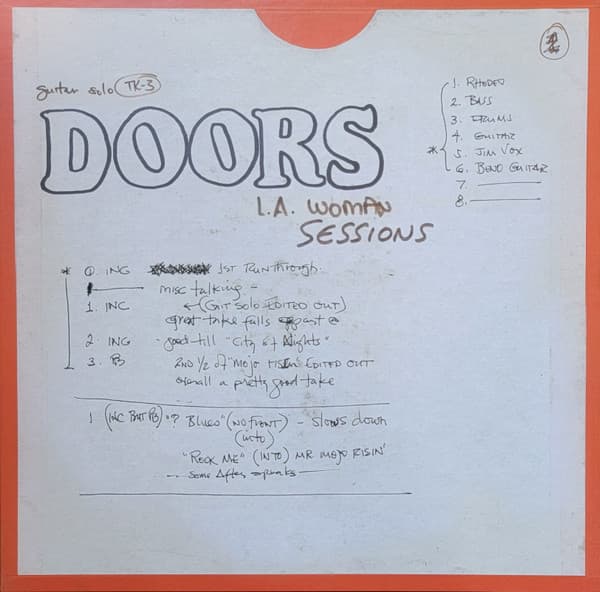 guitar solo TK-3
DOORS
L.A. WOMAN
SESSIONS
1. RHODES
2. BASS
3. DRUMS
4. GUITAR
* 5. JIM VOX
6. BEND GUITAR
7.
8.
* 0. ING 1ST RUN through.
misc talking -
1. INC ←(GIT SOLO EDITED OUT)
great take falls apart @
2. ING - good till "City of Nights"
3. PB 2ND 1/2 of "MOJO RISIN" EDITED OUT
overall a pretty good take
1 (INC BUT PB) "? Blues" (NO FRONT) - slows down
(into)
"ROCK ME" (INTO) MR MOJO RISIN'
-- some After speaks --